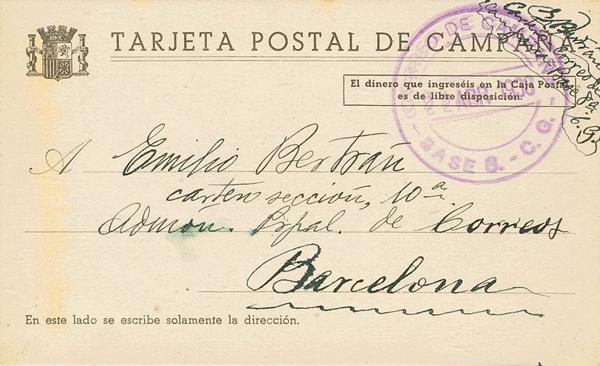 TARJETA POSTAL DE CAMPAÑA
El dinero que ingreséis en la Caja Postal
es de libre disposición.
BASE 8.- C. G.
A Emilio Bertrán
cartero sección, 10ª
Admón. Ppal. de Correos
Barcelona
En este lado se escribe solamente la dirección.